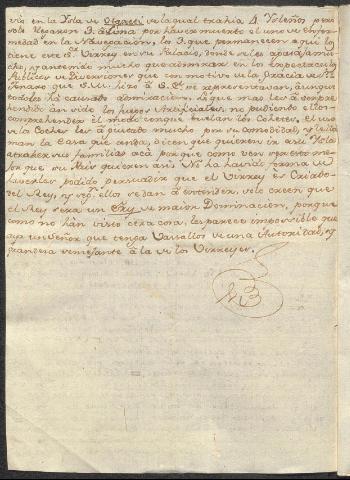 vio en la Ysla de Otageti de la qual trahia 4 Ysleños pero
solo llegaron 3 à Lima por haver muerto el uno de enfer
medad en la Navegacion, los 3 que permanecen aqui los
tiene este Sr. Virrey en su Palacio, donde se les agasaja mu
cho, y an tenido mucho que admirar en los espectaculos
Publicos de Diversiones que con motivo de la Gracia de Sn.
Genaro que S.M. hizo à S.E. se representavan, aunque
todo les hà causado admiracion. Lo que mas les à sorpre
hendido àn sido los fuegos Artificiales, no pudiendo ellos
comprehender èl modo conque buelan los Cohetes. El uso
de los Coches les à gustado mucho por su comodidad, y lla
man la Casa que anda, dicen que quieren ir à su Ysla
à traher sus familias acà porque como ven que esta me
jor que su Pais quieren aqui. No ha havido forma de
haverles podido persuadir que el Virrey es Criado
del Rey, y segn. ellos se dan à entender, solo creen que
el Rey sera un de maior Dominacion, porque
como no hàn visto otra cosa, les parece impossible que
aya un Señor que tenga Vasallos de una Autoridad, y
grandeza semejante à la de los Virreyes.